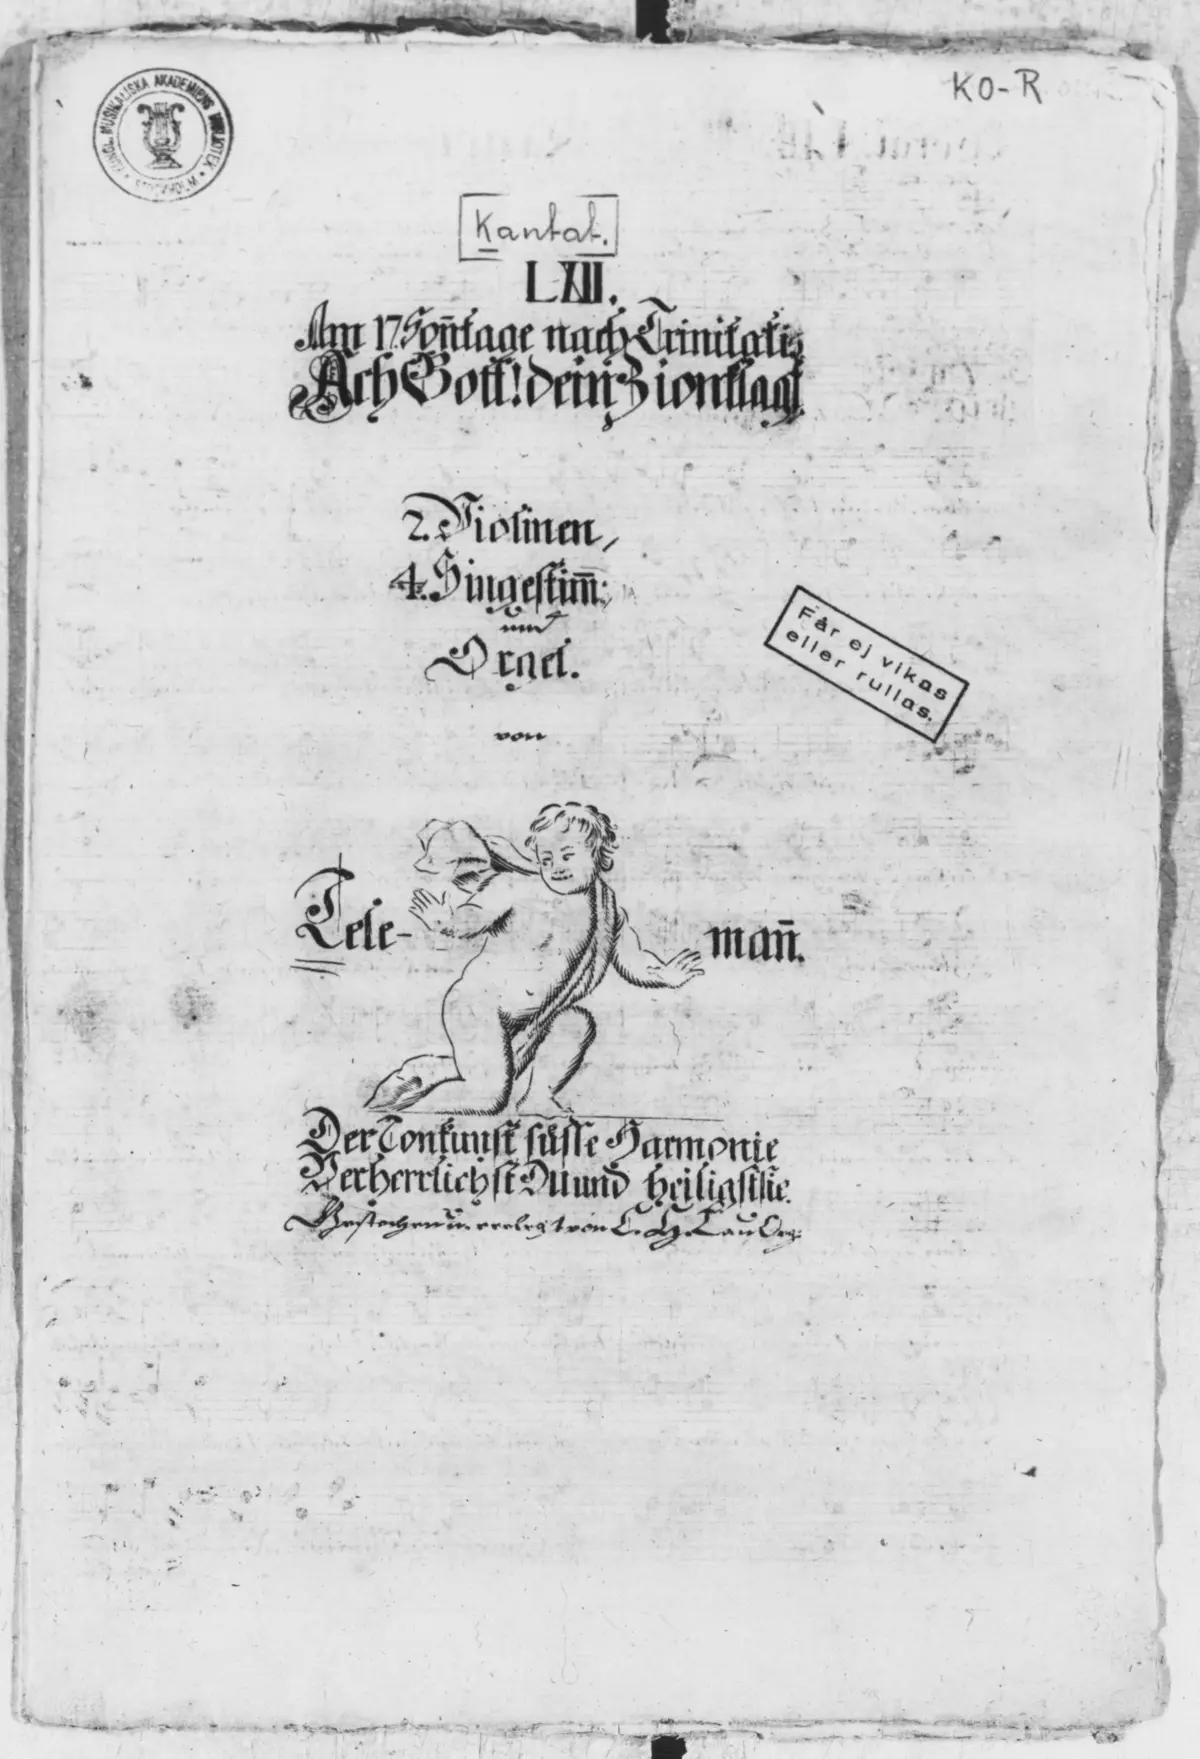 KUNGL. MUSIKALISKA AKADEMIENS BIBLIOTEK
KO-R
Kantat.
LXII.
Am 17. Soñtage nach Trinitatis
Ach Gott! dein Zion klagt
2. Violinen,
4. Singestim̄:
und
Orgel.
von
Tele- mañ.
Der Tonkunst süsse Harmonie
Verherrlichst Du und heiligst sie.
Gestochen u. verlegt von C. H. Lau Org:
Får ej vikas
eller rullas.